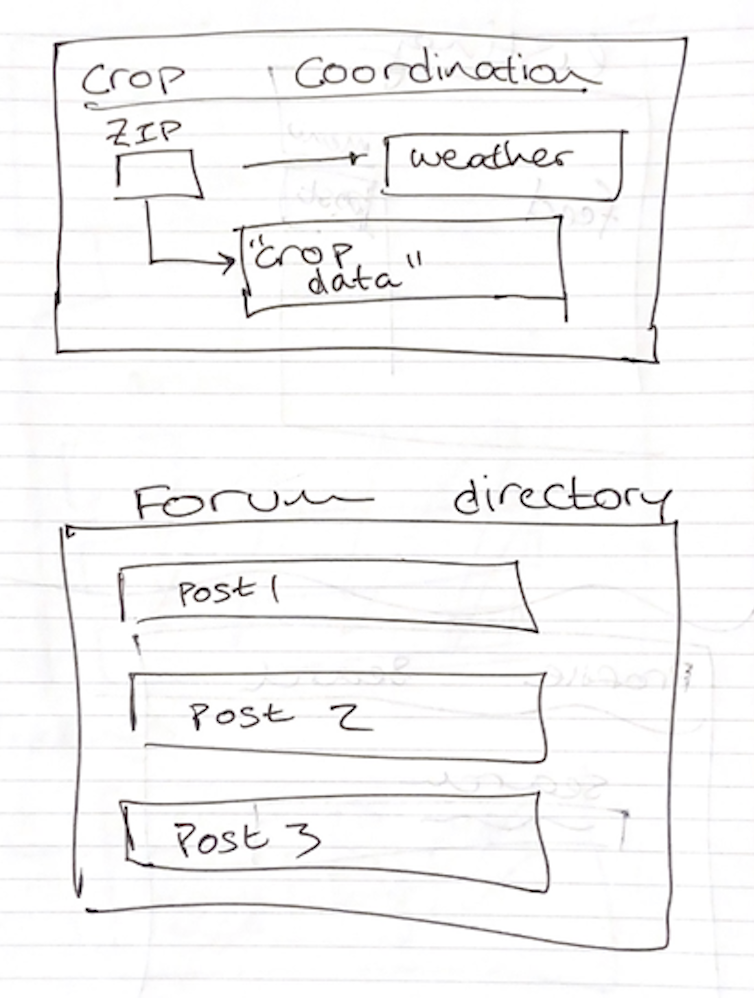 Crop Coordination
ZIP
weather
"crop
data"
Forum directory
Post 1
Post 2
Post 3